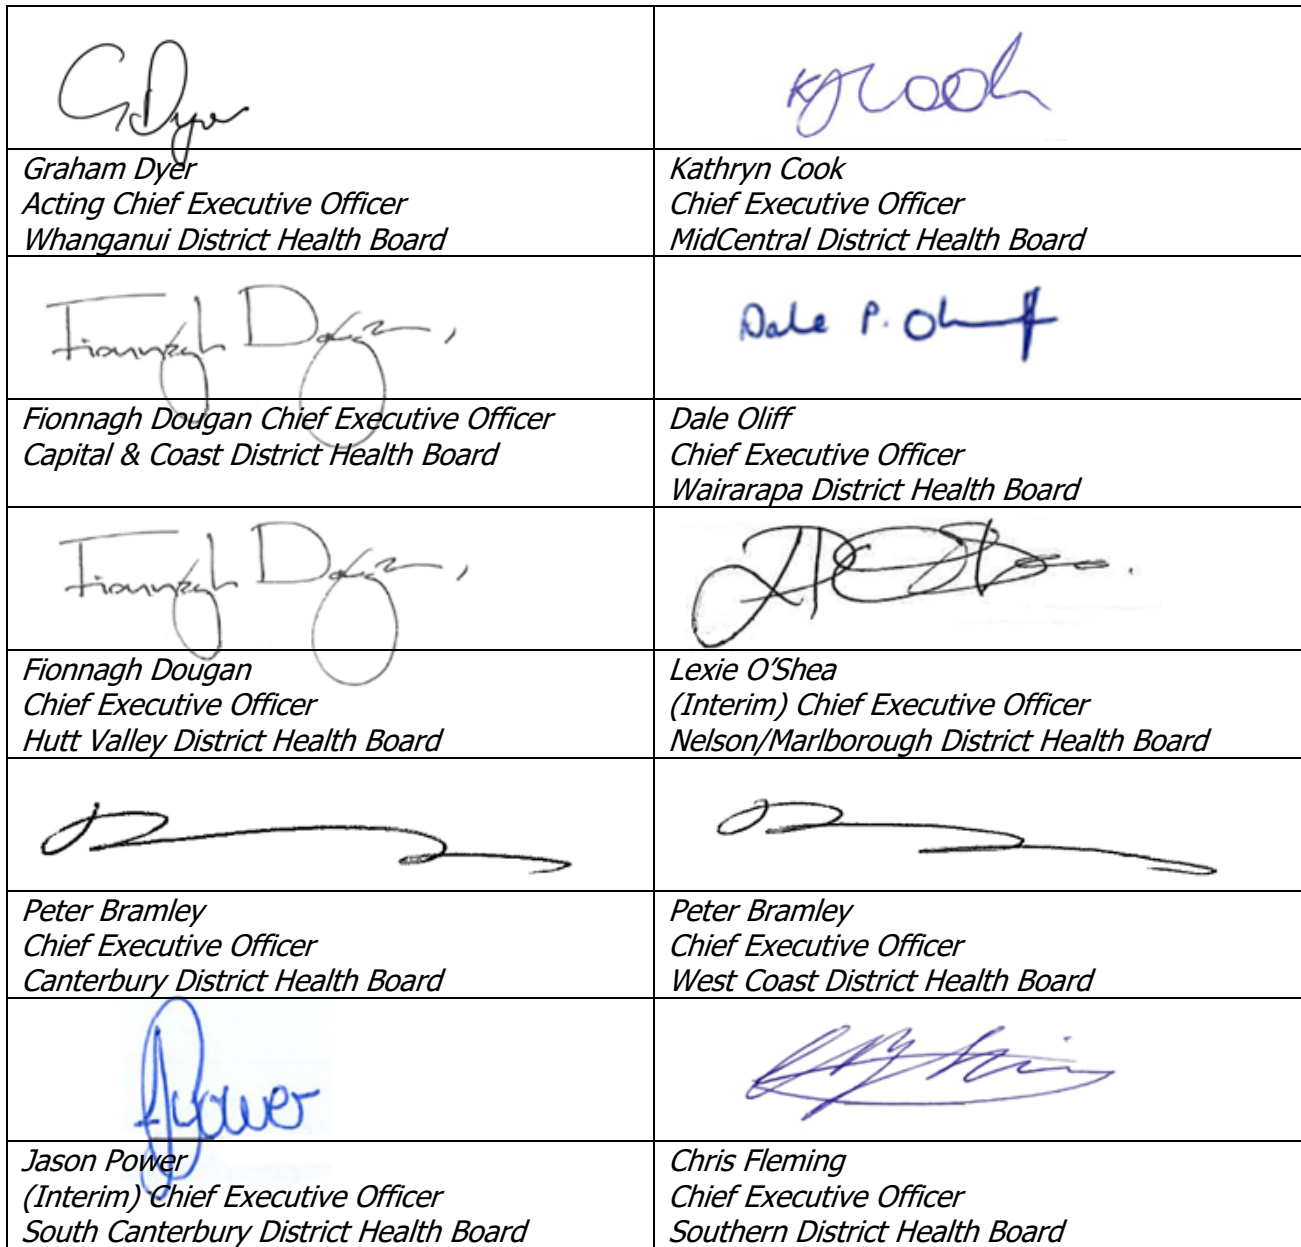 G Dyer
KJ Cook
Graham Dyer
Acting Chief Executive Officer
Whanganui District Health Board
Kathryn Cook
Chief Executive Officer
MidCentral District Health Board
Fionnagh Dougan,
Dale P. Oliff
Fionnagh Dougan Chief Executive Officer
Capital & Coast District Health Board
Dale Oliff
Chief Executive Officer
Wairarapa District Health Board
Fionnagh Dougan,
Fionnagh Dougan
Chief Executive Officer
Hutt Valley District Health Board
Lexie O'Shea
(Interim) Chief Executive Officer
Nelson/Marlborough District Health Board
Peter Bramley
Chief Executive Officer
Canterbury District Health Board
Peter Bramley
Chief Executive Officer
West Coast District Health Board
JPower
Jason Power
(Interim) Chief Executive Officer
South Canterbury District Health Board
Chris Fleming
Chief Executive Officer
Southern District Health Board